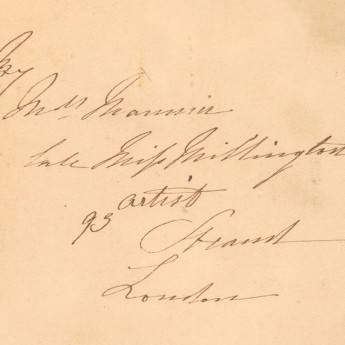 By
Mrs Mannin
late Miss Millington
artist
93
Strand
London